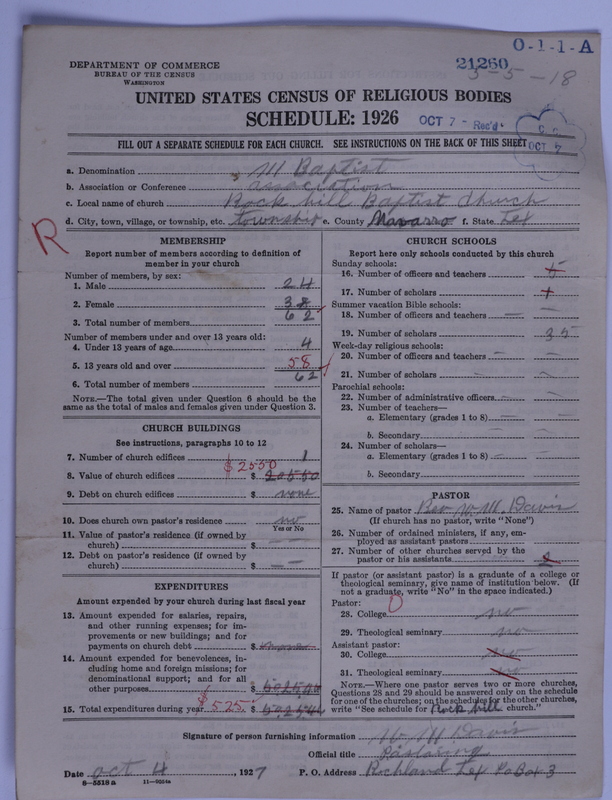 O-1-1-A
DEPARTMENT OF COMMERCE
BUREAU OF THE CENSUS
WASHINGTON
21260
3-5-18
UNITED STATES CENSUS OF RELIGIOUS BODIES
SCHEDULE: 1926
OCT 7 - Rec'd.
OCT 7
FILL OUT A SEPARATE SCHEDULE FOR EACH CHURCH. SEE INSTRUCTIONS ON THE BACK OF THIS SHEET
a. Denomination M Baptist
b. Association or Conference association
c. Local name of church Rock hill Baptist Church
d. City, town, village, or township, etc. township e. County Navarro f. State Tex
R
MEMBERSHIP
Report number of members according to definition of
member in your church
Number of members, by sex:
1. Male 24
2. Female 38
3. Total number of members 62
Number of members under and over 13 years old:
4. Under 13 years of age 4
5. 13 years old and over 58
6. Total number of members 62
NOTE.—The total given under Question 6 should be the
same as the total of males and females given under Question 3.
CHURCH BUILDINGS
See instructions, paragraphs 10 to 12
7. Number of church edifices 1
$2550
8. Value of church edifices $
9. Debt on church edifices $ none
10. Does church own pastor's residence no
Yes or No
11. Value of pastor's residence (if owned by
church) $
12. Debt on pastor's residence (if owned by
church) $ — —
EXPENDITURES
Amount expended by your church during last fiscal year
13. Amount expended for salaries, repairs,
and other running expenses; for im-
provements or new buildings; and for
payments on church debt $
14. Amount expended for benevolences, in-
cluding home and foreign missions; for
denominational support; and for all
other purposes $
15. Total expenditures during year $525 $
CHURCH SCHOOLS
Report here only schools conducted by this church
Sunday schools:
16. Number of officers and teachers
17. Number of scholars
Summer vacation Bible schools:
18. Number of officers and teachers — —
19. Number of scholars 35
Week-day religious schools:
20. Number of officers and teachers — —
21. Number of scholars — —
Parochial schools:
22. Number of administrative officers — —
23. Number of teachers—
a. Elementary (grades 1 to 8) — —
b. Secondary
24. Number of scholars—
a. Elementary (grades 1 to 8) — —
b. Secondary
PASTOR
25. Name of pastor Rev W. M. Davis
(If church has no pastor, write "None")
26. Number of ordained ministers, if any, em-
ployed as assistant pastors
27. Number of other churches served by the
pastor or his assistants 2
If pastor (or assistant pastor) is a graduate of a college or
theological seminary, give name of institution below. (If
not a graduate, write "No" in the space indicated.)
Pastor: 0
28. College no
29. Theological seminary no
Assistant pastor:
30. College no
31. Theological seminary no
NOTE.—Where one pastor serves two or more churches,
Questions 28 and 29 should be answered only on the schedule
for one of the churches; on the schedules for the other churches,
write "See schedule for Rock hill church."
Signature of person furnishing information W. M Davis
Official title Pastoring
Date Oct 4, 1927 P. O. Address Rochland Tex Po Box 3
8—5518a 11—9224a